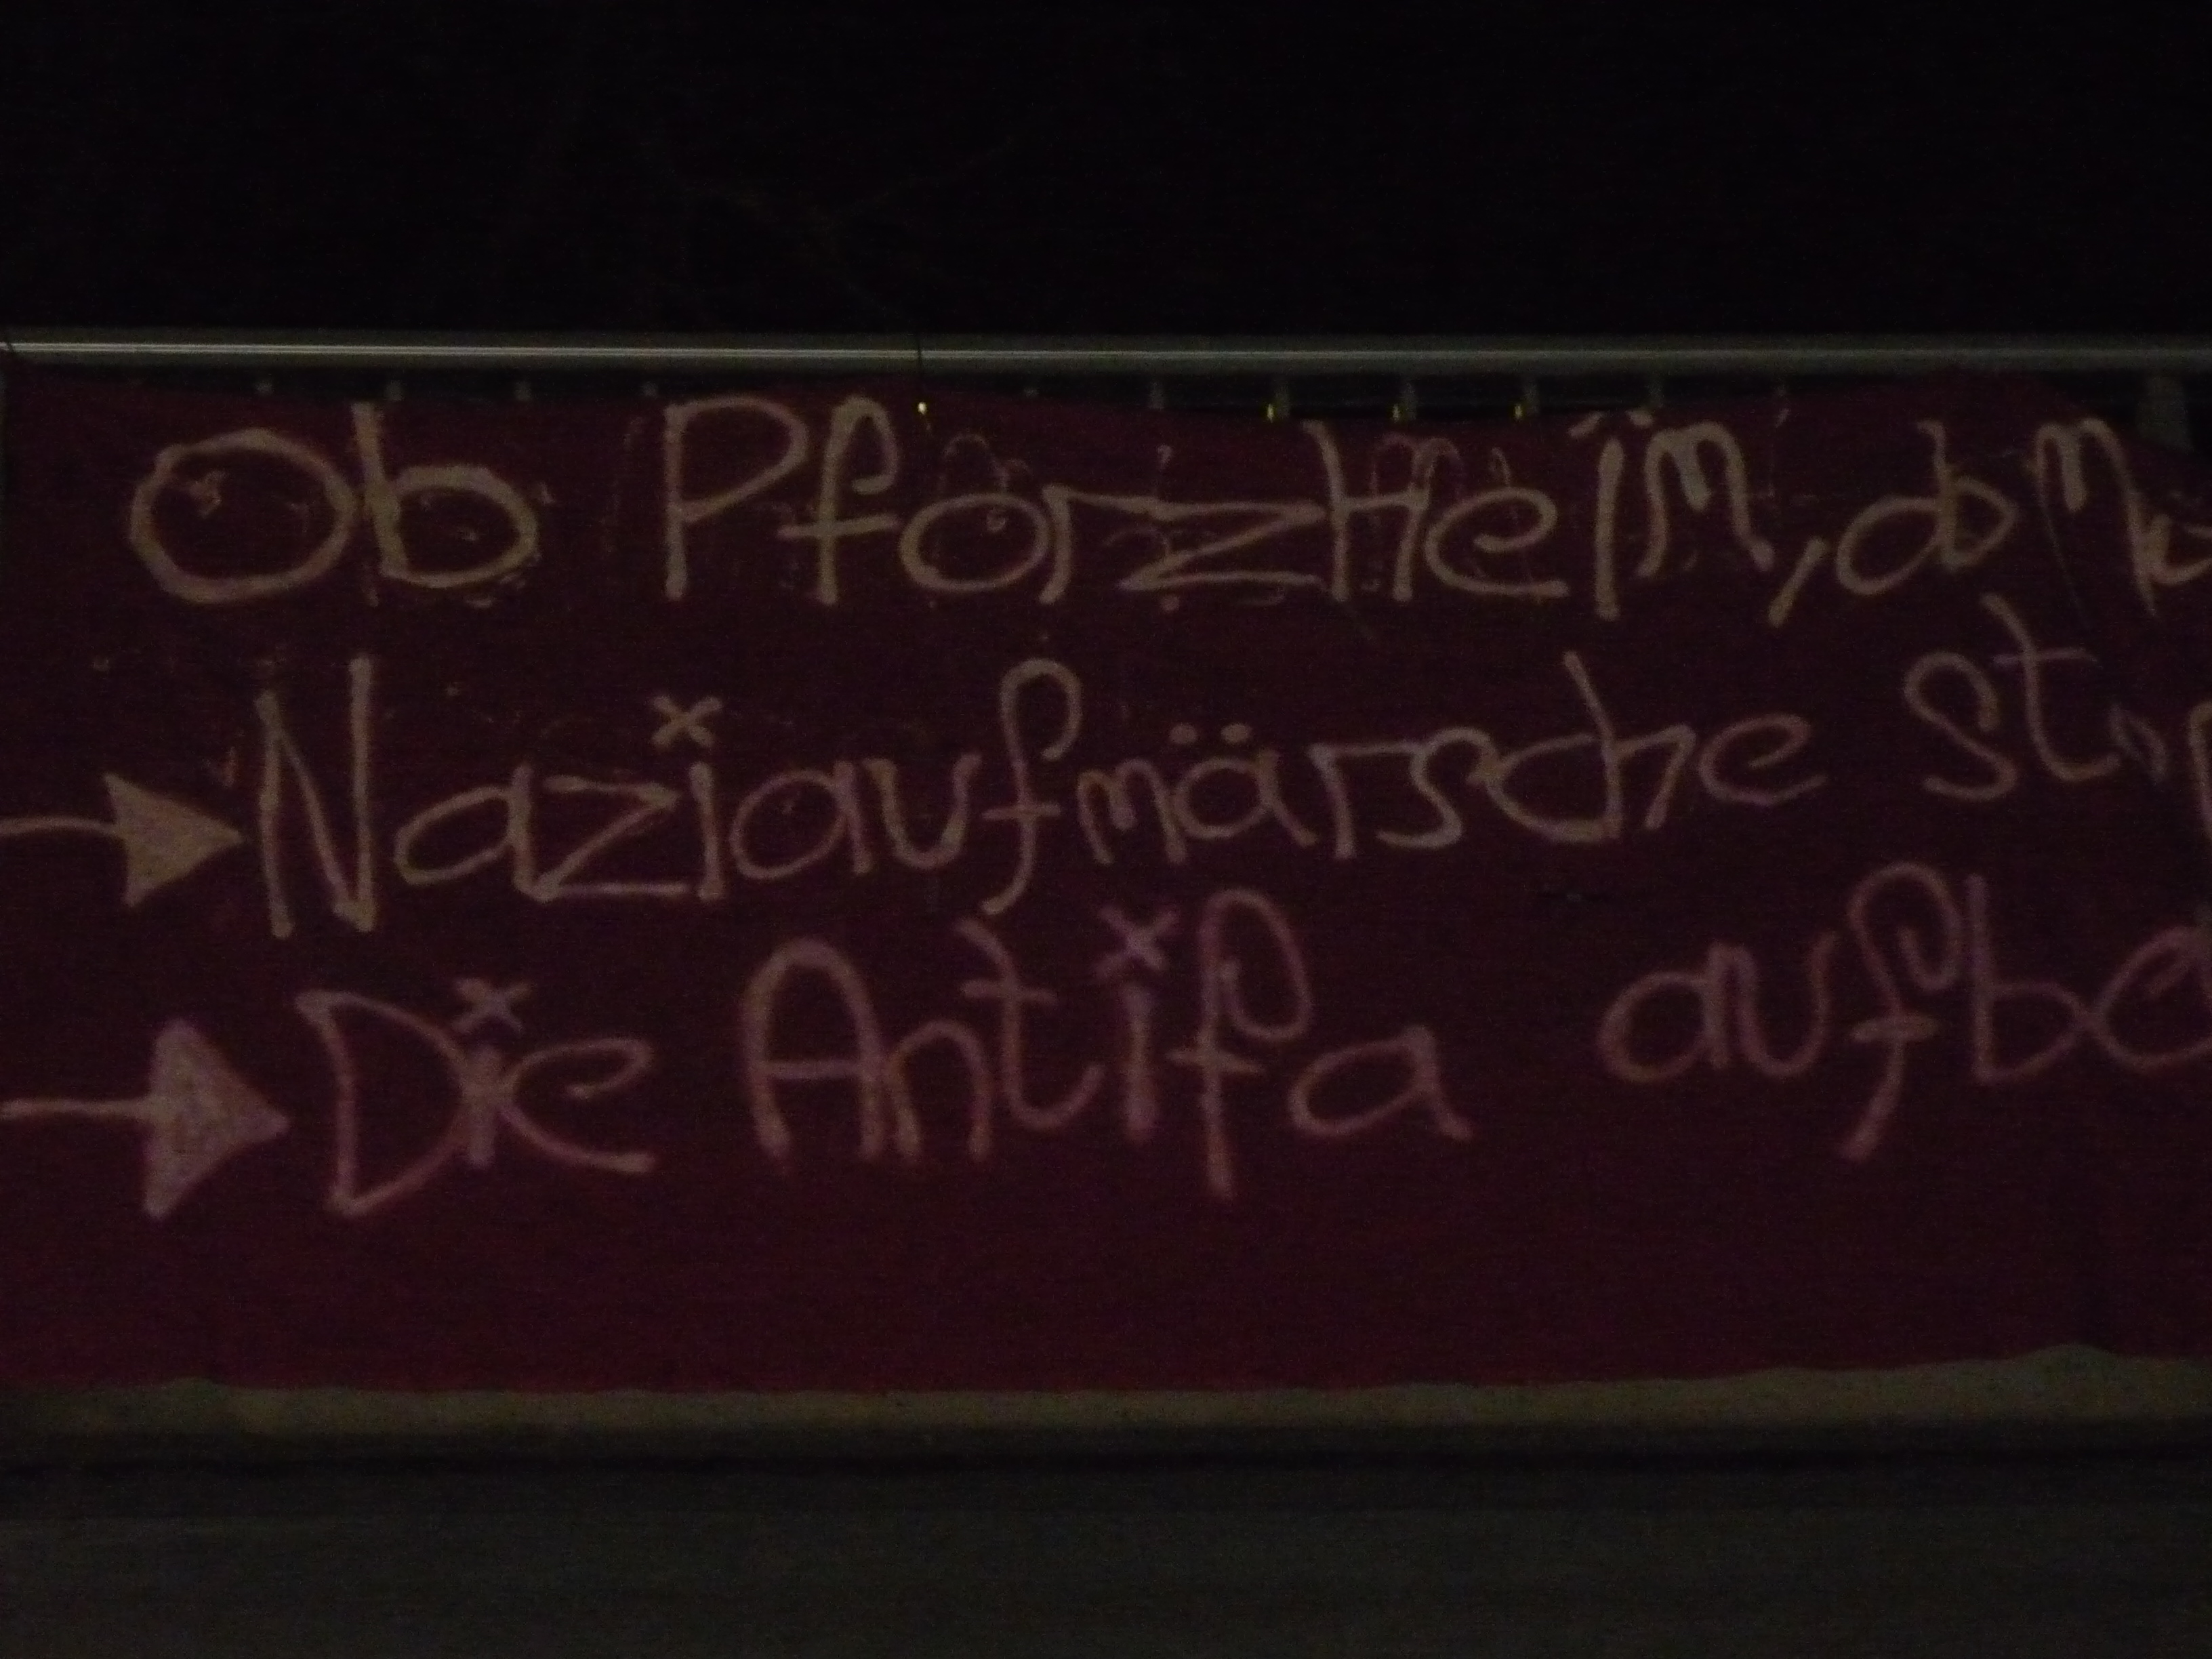 Ob Pforzheim, ob
→ Naziaufmärsche
→ Die Antifa